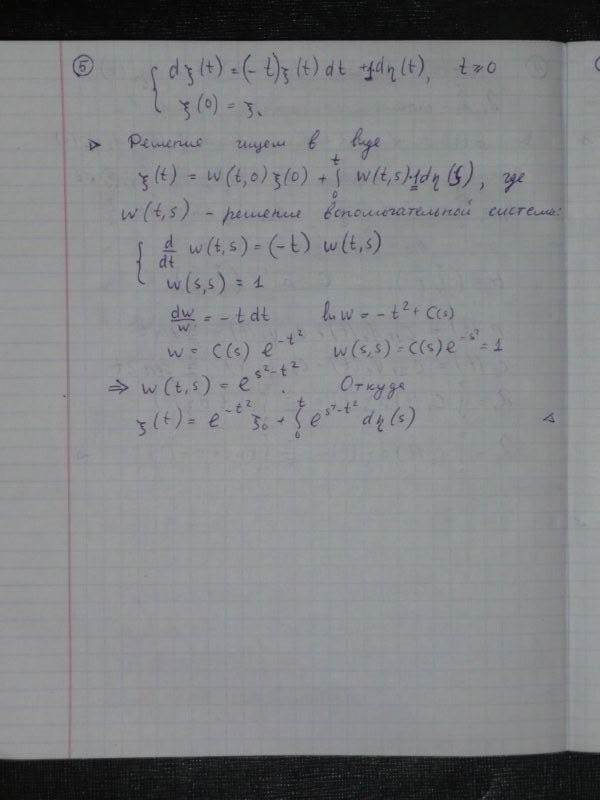 ⑤ { dξ(t) = (-t)ξ(t) dt + 1dη(t), t ≥ 0
ξ(0) = ξ₀
▷ Решение ищем в виде
ξ(t) = w(t,0)ξ(0) + ∫₀ᵗ w(t,s)·1dη(s), где
w(t,s) - решение вспомогательной системы:
{ d/dt w(t,s) = (-t) w(t,s)
w(s,s) = 1
dw/w = -t dt ln w = -t² + C(s)
w = C(s) e^{-t²} w(s,s) = C(s) e^{-s²} = 1
⇒ w(t,s) = e^{s²-t²}. Откуда
ξ(t) = e^{-t²} ξ₀ + ∫₀ᵗ e^{s²-t²} dη(s) ◁